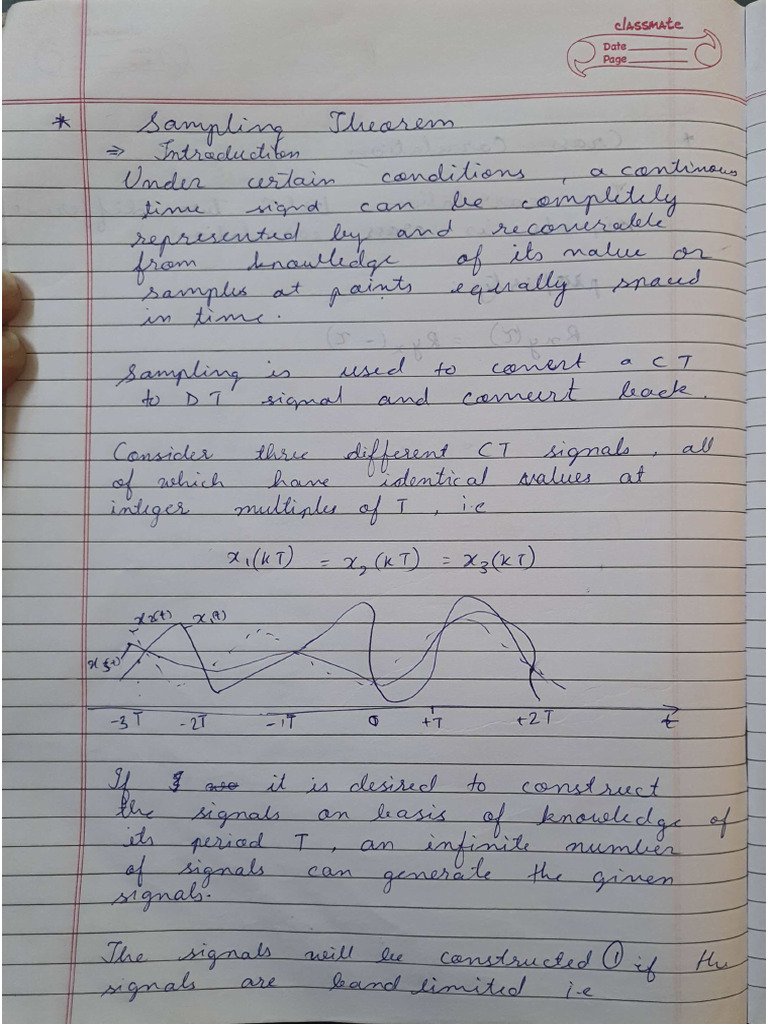 classmate
Date
Page
* Sampling Theorem
⇒ Introduction
Under certain conditions, a continous
time signal can be completely
represented by and recoverable
from knowledge of its value or
samples at points equally spaced
in time.
Rxy(τ) = Ryx(-τ)
Sampling is used to convert a CT
to DT signal and convert back.
Consider three different CT signals, all
of which have identical values at
integer multiples of T, i.e
x₁(kT) = x₂(kT) = x₃(kT)
x₂(t) x₁(t)
x₃(t)
-3T -2T -1T 0 +T +2T t
If it is desired to construct
the signals on basis of knowledge of
its period T, an infinite number
of signals can generate the given
signals.
The signals will be constructed ① if the
signals are band limited i.e